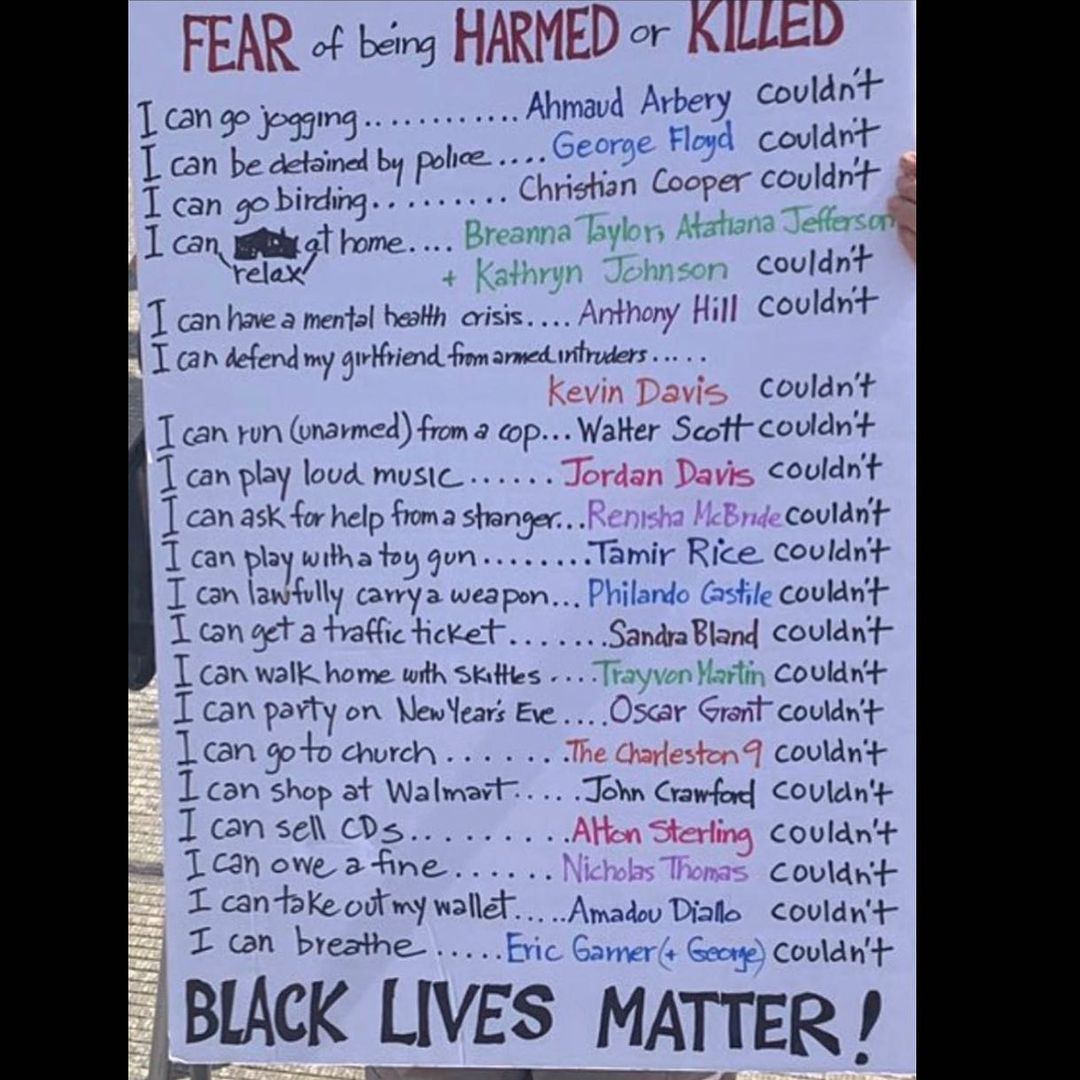 FEAR of being HARMED or KILLED
I can go jogging............ Ahmaud Arbery couldn't
I can be detained by police.... George Floyd couldn't
I can go birding......... Christian Cooper couldn't
I can relax at home.... Breanna Taylor, Atatiana Jefferson
+ Kathryn Johnson couldn't
I can have a mental health crisis.... Anthony Hill couldn't
I can defend my girlfriend from armed intruders.....
Kevin Davis couldn't
I can run (unarmed) from a cop... Walter Scott couldn't
I can play loud music...... Jordan Davis couldn't
I can ask for help from a stranger... Renisha McBride couldn't
I can play with a toy gun........ Tamir Rice couldn't
I can lawfully carry a weapon... Philando Castile couldn't
I can get a traffic ticket....... Sandra Bland couldn't
I can walk home with Skittles .... Trayvon Martin couldn't
I can party on New Year's Eve.... Oscar Grant couldn't
I can go to church....... The Charleston 9 couldn't
I can shop at Walmart..... John Crawford couldn't
I can sell CDs.......... Alton Sterling couldn't
I can owe a fine...... Nicholas Thomas couldn't
I can take out my wallet..... Amadou Diallo couldn't
I can breathe..... Eric Garner (+ George) couldn't
BLACK LIVES MATTER!